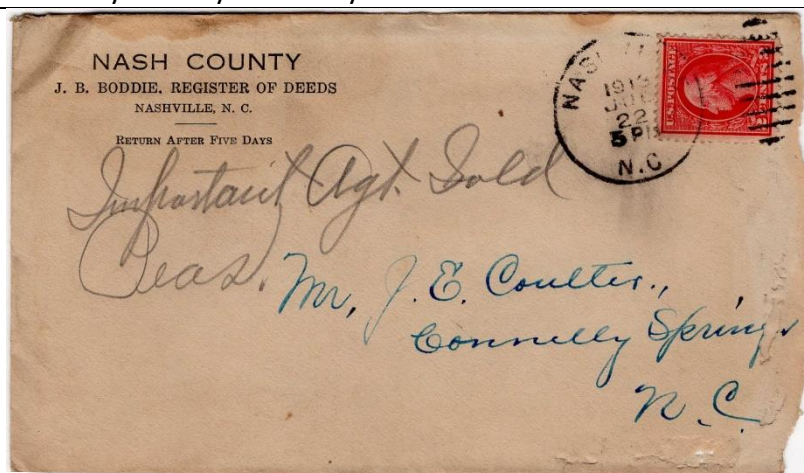 NASH COUNTY
J. B. BODDIE, REGISTER OF DEEDS
NASHVILLE, N. C.
RETURN AFTER FIVE DAYS
NAS
1919
JUL
22
5 PM
N.C
U.S. POSTAGE
Important Agt. Sold
Peas.
Mr. J. E. Coulter.,
Connelly Springs
N. C.